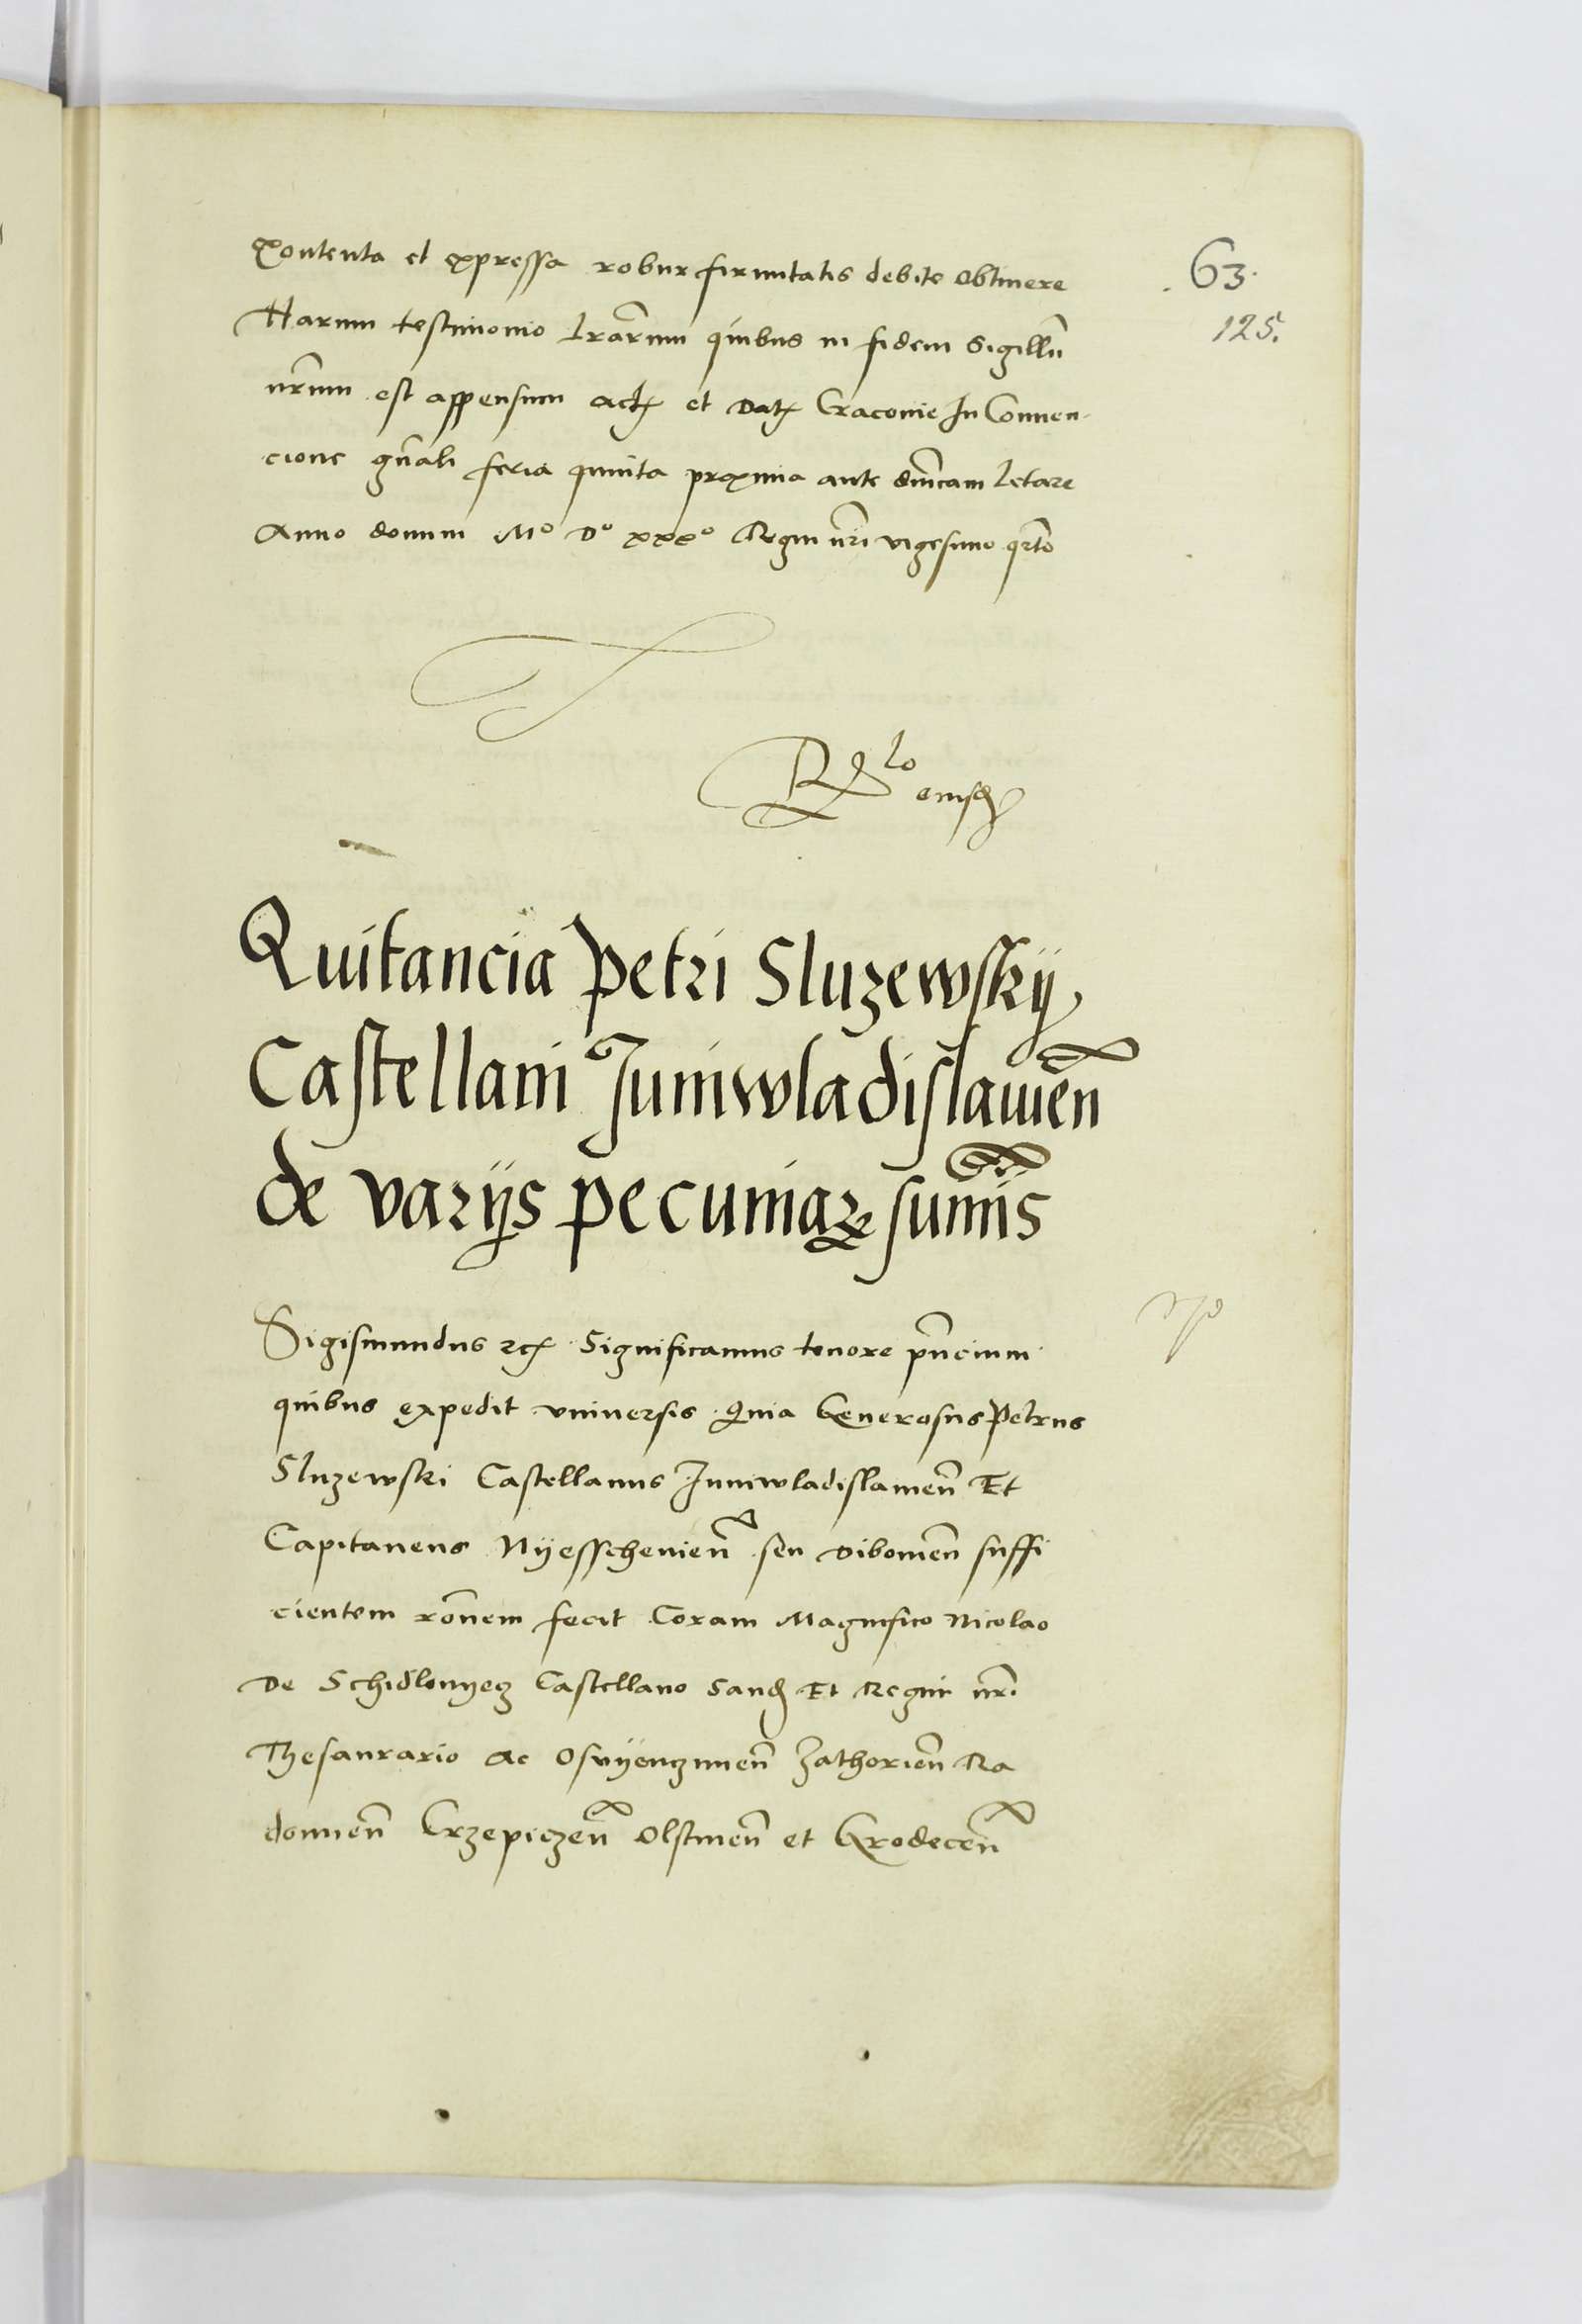 Contenta et expressa robur firmitatis debite obtinere
63.
Harum testimonio lrarum quibus in fidem Sigillu
125.
nrum est appensum act et Dat Cracouie In Conuen-
cione gnali feria quinta proxima ante dnicam letare
Anno domini Mº Dº xxxº Regni nri vigesimo qrto
Quitancia Petri Sluzewskij
Castellani Juniwladislauien
de varijs pecuniarꝝ sumis
Sigismundus etc Significamus tenore pncium
quibus expedit vniuersis Quia Generosus Petrus
Sluzewski Castellanus Juniwladislauien Et
Capitaneus Nyesscheuien seu Dibouien suffi
cientem ronem fecit Coram Magnifico Nicolao
De Schidlouyecz Castellano Sand Et Regni nri
Thesaurario ac Osvyenczimen Zathorien Ra
domien Crzepiczen Olstinen et Grodecen